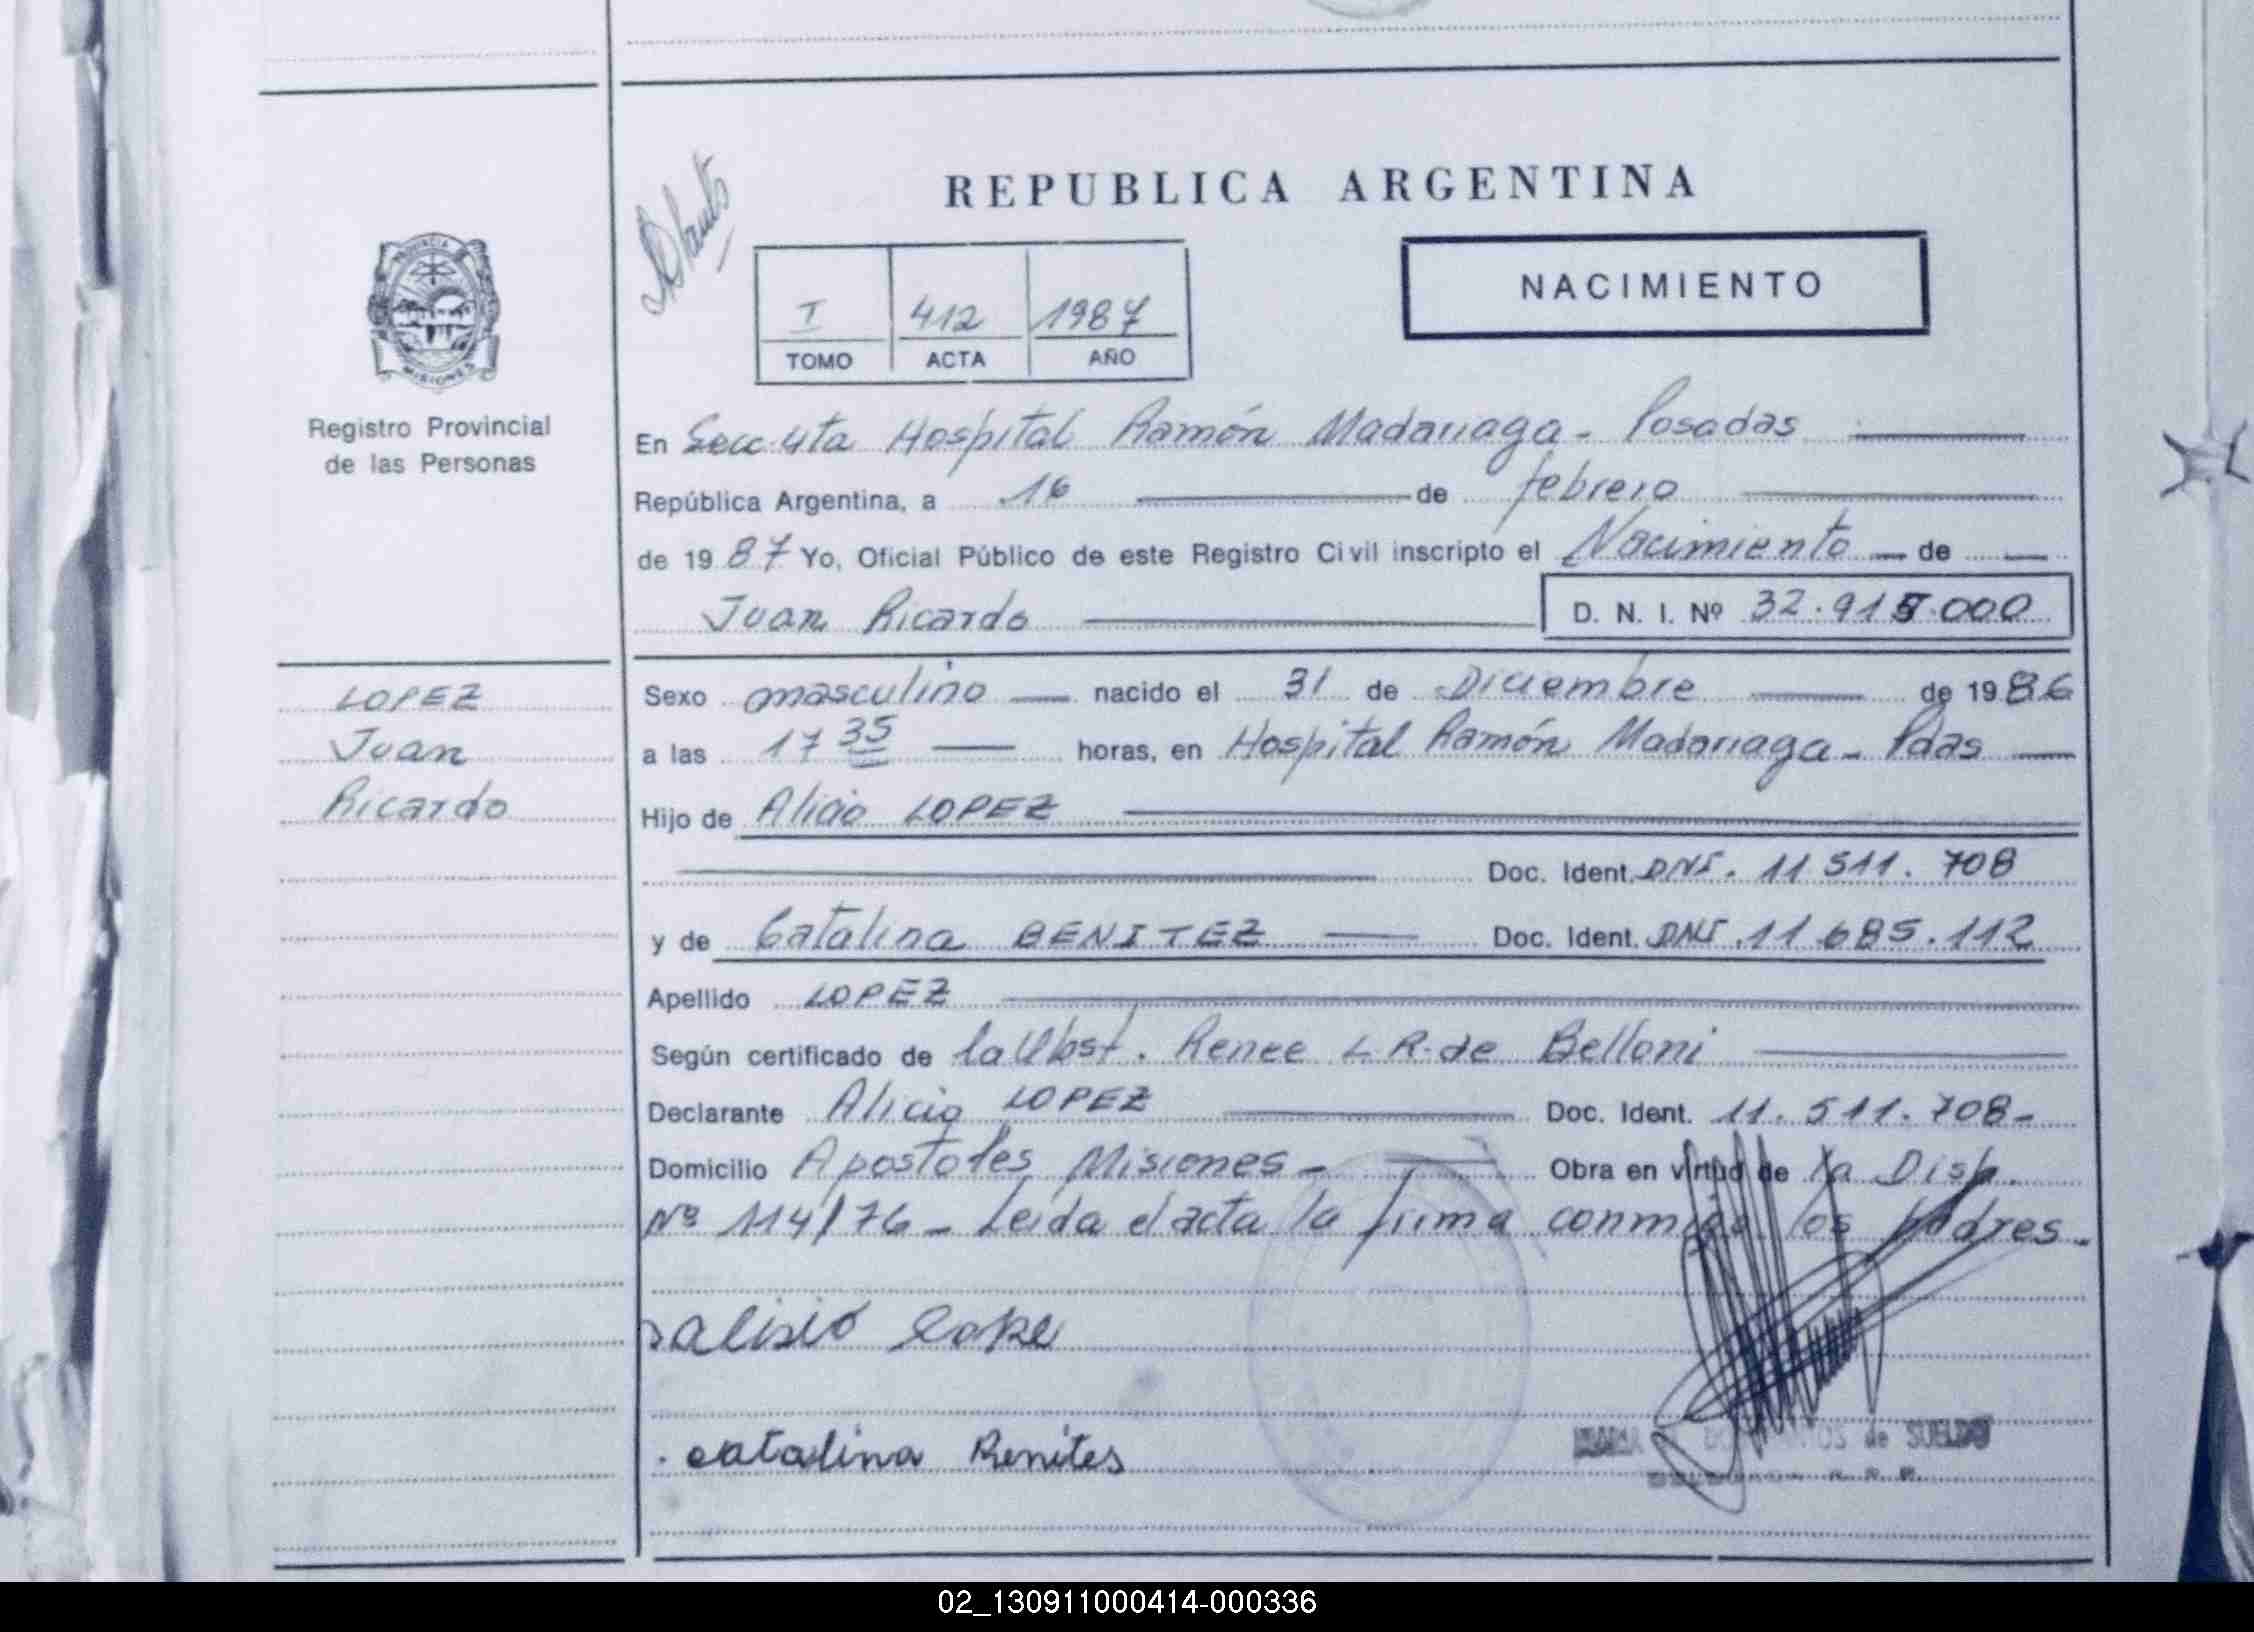 REPUBLICA ARGENTINA
NACIMIENTO
I 412 1987
TOMO ACTA AÑO
PROVINCIA
MISIONES
Registro Provincial
de las Personas
En Secc. 4ta Hospital Ramón Madariaga - Posadas
República Argentina, a 16 de febrero
de 1987 Yo, Oficial Público de este Registro Civil inscripto el Nacimiento de
Juan Ricardo D. N. I. Nº 32.915.000
LOPEZ
Juan
Ricardo
Sexo masculino nacido el 31 de Diciembre de 1986
a las 17 35 horas, en Hospital Ramón Madariaga - Pdas
Hijo de Alicio LOPEZ
Doc. Ident. DNI. 11.511.708
y de Catalina BENITEZ Doc. Ident. DNI. 11.685.112
Apellido LOPEZ
Según certificado de la Obst. Renee L R. de Belloni
Declarante Alicio LOPEZ Doc. Ident. 11.511.708-
Domicilio Apostoles Misiones - Obra en virtud de la Disp.
Nº 114/76 - Leida el acta la firma conmigo los padres.
alisio Lope
catalina Benites
de SUELDO
02_130911000414-000336